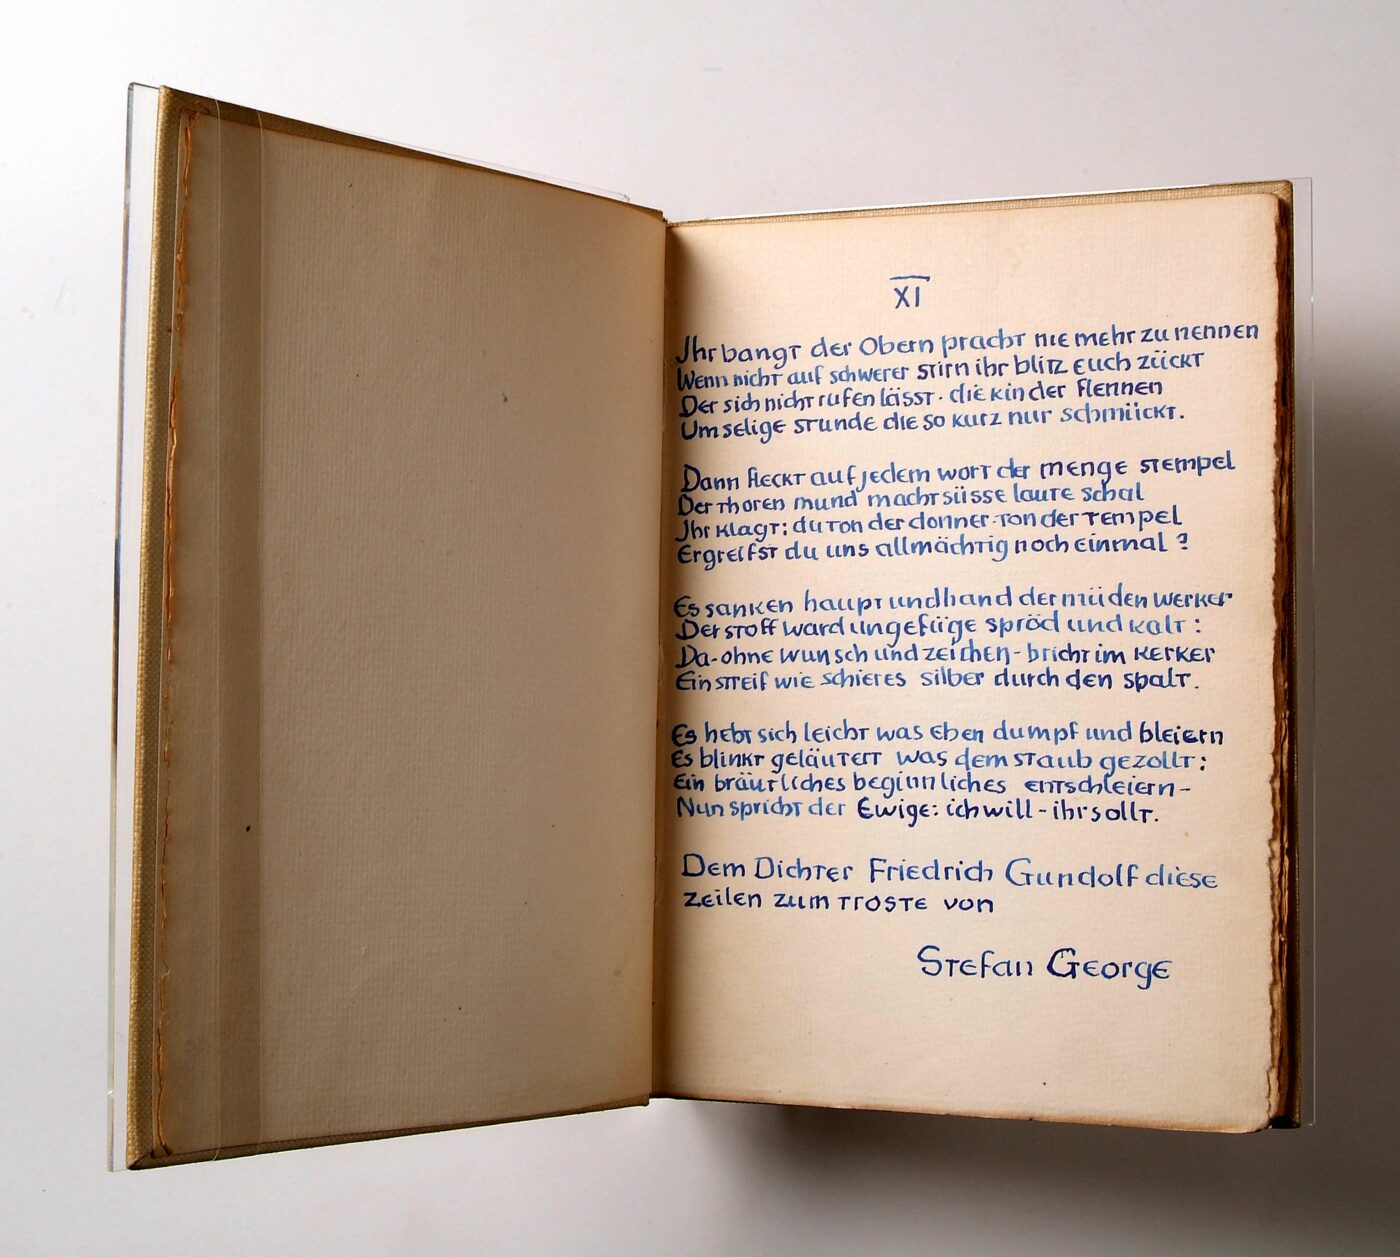 XI
Ihr bangt der Obern pracht nie mehr zu nennen
Wenn nicht auf schwerer stirn ihr blitz euch zückt
Der sich nicht rufen lässt · die kinder flennen
Um selige stunde die so kurz nur schmückt.
Dann fleckt auf jedem wort der menge stempel
Der thoren mund macht süsse laute schal
Ihr klagt: du ton der donner · ton der tempel
Ergreifst du uns allmächtig noch einmal?
Es sanken haupt und hand der müden werker
Der stoff ward ungefüge spröd und kalt:
Da - ohne wunsch und zeichen - bricht im kerker
Ein streif wie schieres silber durch den spalt.
Es hebt sich leicht was eben dumpf und bleiern
Es blinkt geläutert was dem staub gezollt:
Ein bräutliches beginnliches entschleiern -
Nun spricht der Ewige: ich will - ihr sollt.
Dem Dichter Friedrich Gundolf diese
zeilen zum troste von
Stefan George